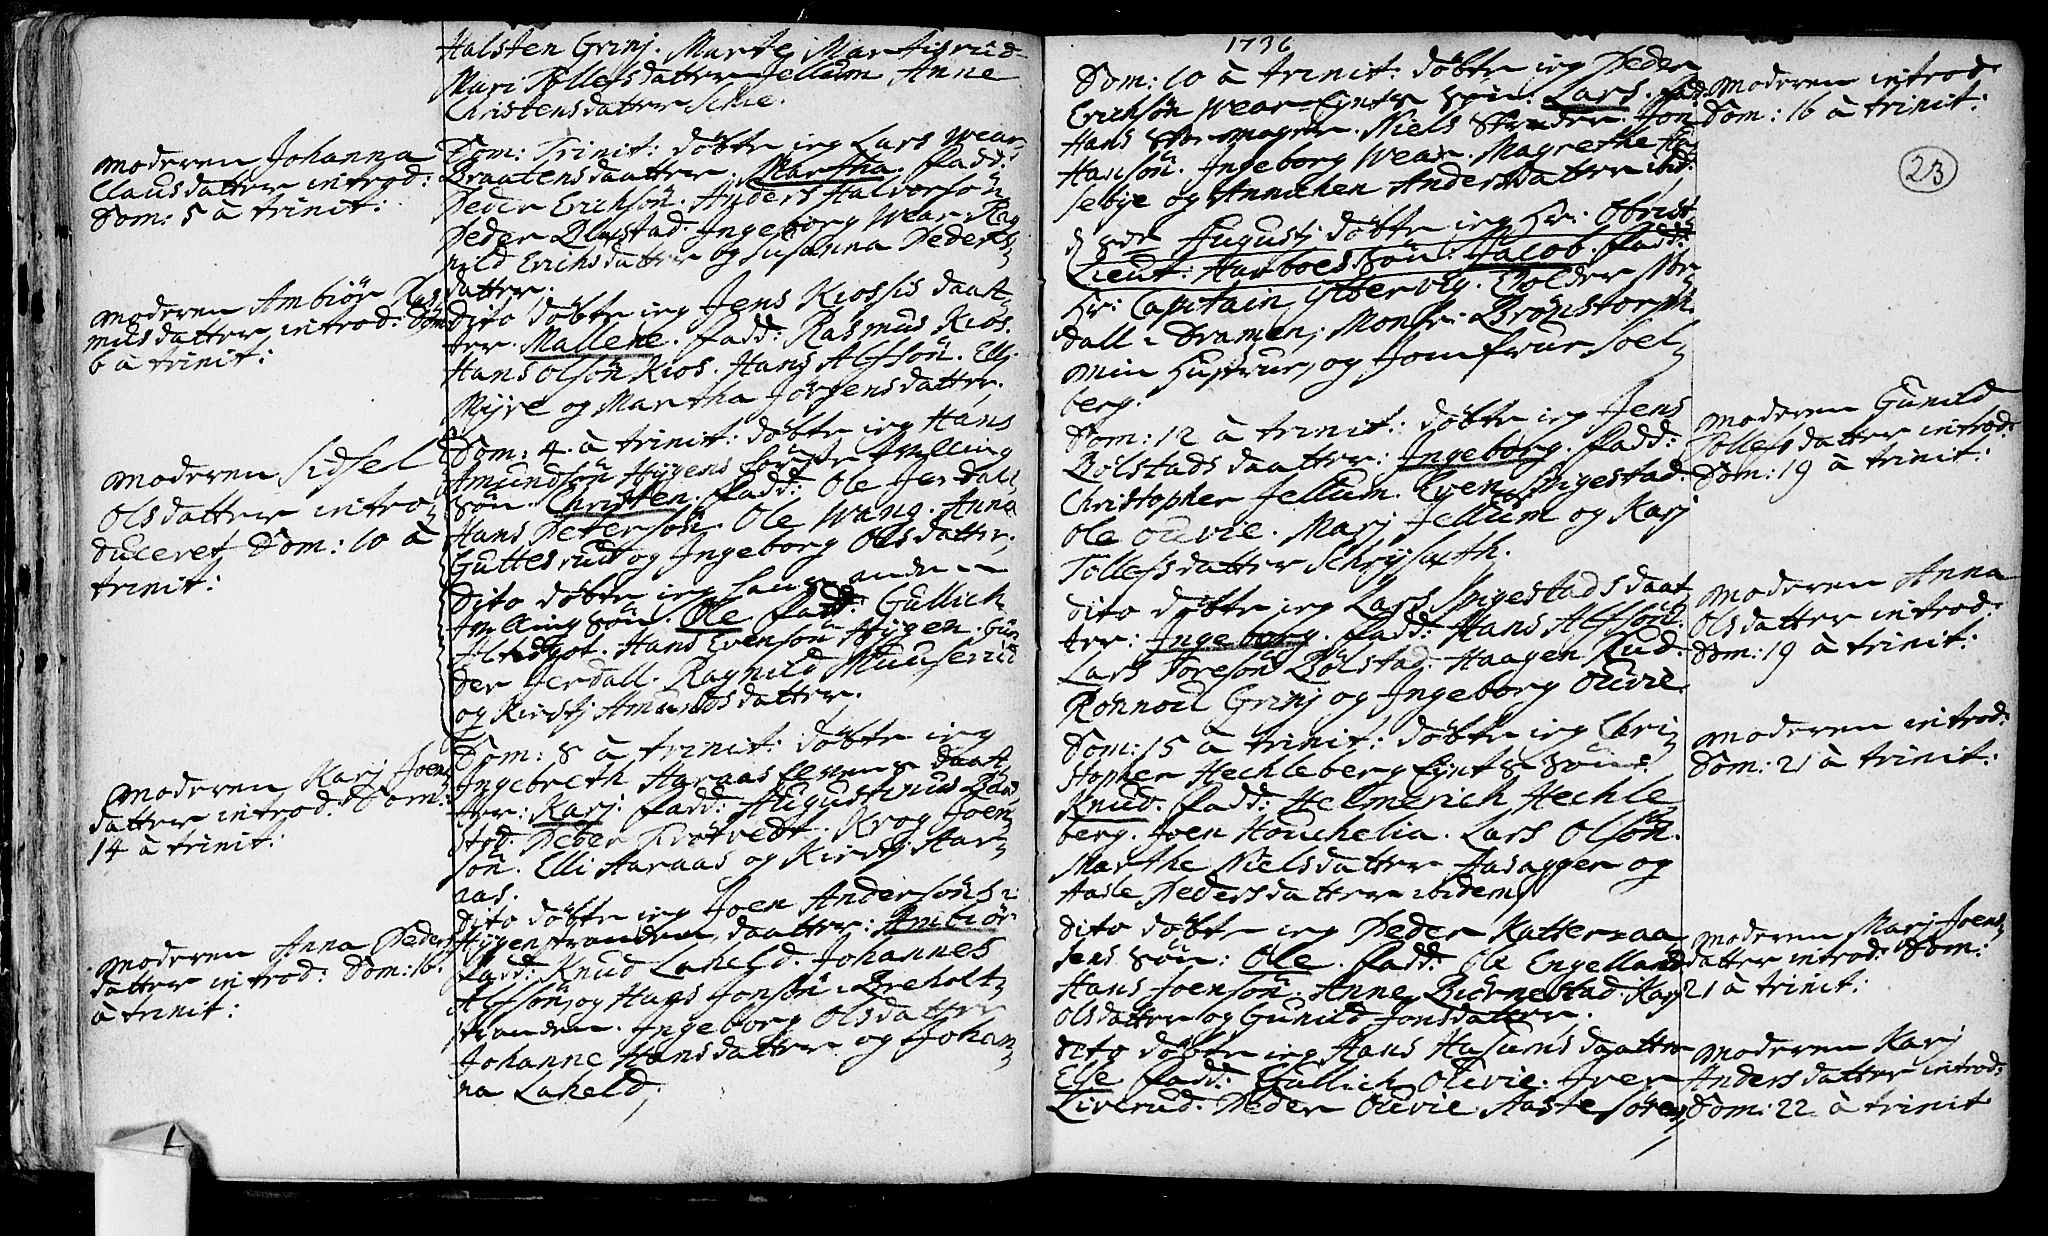 Halsten Grinj. Marte Martisrud
Mari Tollefsdatter Jellum Anne
Christensdatter Schie.
Moderen Johanna
Clausdatter introd:
Dom: 5 à trinit:
Dom: Trinit: døbte ieg Lars Wear
Braatens daatter. Martha. fadd:
Peder Erichsøn. Anders Halvorsøn
Peder Bolstad. Ingeborg Wear. Rag
nild Erichsdatter og Susanna Peders
datter.
Moderen Ambiør Ras
musdatter introd: Dom
6 à trinit:
Dito døbte ieg Jens Kiossis daat
ter. Mallene. fadd: Rasmus Kios.
Hans Olsøn Kios. Hans Alfsøn. Elli
Myre og Martha Jørgensdatter.
Moderen Sidsel
Olsdatter intro
duceret Dom: 10 à
trinit:
Dom: 4 à trinit: døbte ieg Hans
Amundsøn Hygens første tvilling
søn. Christen. fadd: Ole Jerdall
Hans Petersøn. Ole Wang. Anna
Guttesrud og Ingeborg Olsdatter.
Dito døbte ieg hans anden
tvilling søn. Ole fadd: Gullich
Hans Evensøn Hygen. Gun
der Jerdall. Ragnild Muuserud
og Kirstj Amundsdatter.
Moderen Karj Joens
datter introd: Dom:
14 à trinit:
Dom: 8 à trinit: døbte ieg
Ingebreth Haraas daat
ter: Karj. fadd: Augustinus
stad. Peder Krog Joen
søn. Elli Haraas og Kirstj Har
aas.
Moderen Anna Peders
datter introd: Dom: 16.
à trinit:
Dito døbte ieg Joen Andersøns i
Hygenstranden daatter: Ambiør
fadd: Knud Lakeld. Johannes
Alfsøn, og Hans Jonsøn i Breholt
stranden. Ingeborg Olsdatter
Johanne Hansdatter og Johan
na Lakeld.
1736
23
Dom: 10 à trinit: døbte ieg Peder
Erichsøn Wear Eyets søn: Lars. fad.
Hans Niels Jon
Hansøn. Ingeborg Wear. Magrethe
sebye og Annichen Andersdatter ibid:
Moderen introd:
Dom: 16 à trinit:
d Augustj døbte ieg Hr: Obrist
Lieut: Harboes søn: Jacob. fadd:
Hr: Capitain Yttervig.
dall i Dramen, Monsr: Brønstorph
min Hustrue, og Jomfrue Soel
berg.
Dom: 12 à trinit: døbte ieg Jens
Bolstads daatter: Ingeborg. fadd:
Christopher Jellum. Even Spigestad.
Ole Ouvie. Marj Jellum og Karj
Tollefsdatter
Moderen Gunild
Tollefsdatter introd:
Dom: 19 à trinit:
Dito døbte ieg Lars Spigestads daat
ter: Ingeborg. fadd: Hans Alfsøn.
Lars Toresøn Bolstad. Haagen Rud.
Rønnou Grinj og Ingeborg Ouvie.
Moderen Anna
Olsdatter introd:
Dom: 19 à trinit:
Dom: 15 à trinit: døbte ieg Chri
stopher Hechleberg Eyets søn:
Knud. fadd: Helmerich Hechle
berg. Joen Houchelia. Lars Olsøn.
Marthe Nielsdatter og
Aasle Pedersdatter ibidem.
Moderen introd:
Dom: 21 à trinit:
Dito døbte ieg Peder Katteraa
sens søn: Ole. fadd: Ole Engelland
Hans Joensøn. Anne Biørnestad. Karj
Olsdatter og Gunild Jonsdatter.
Moderen Marj Joens
datter introd: Dom:
21 à trinit:
Dito døbte ieg Hans Husums daatter
Else fadd: Gullich Ouvie. Iver
Liverud. Peder Ouvie. Aaste Søren
Moderen Karj
Andersdatter introd:
Dom: 22 à trinit